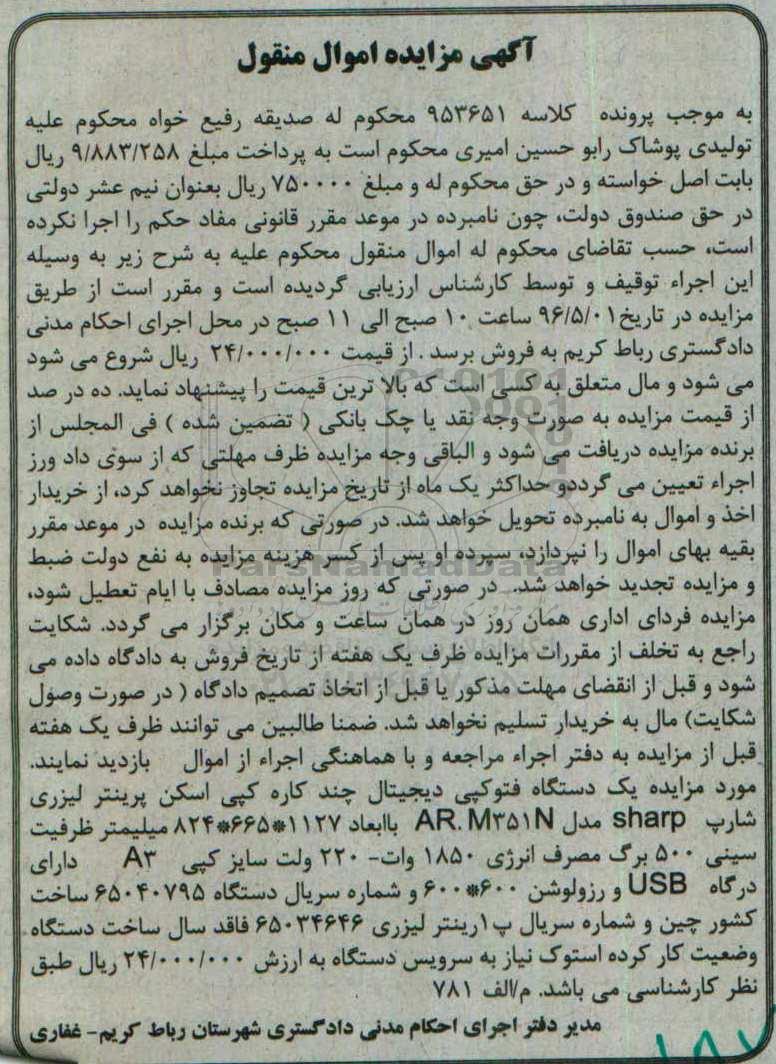 آگهی مزایده اموال منقول
به موجب پرونده کلاسه ۹۵۳۶۵۱ محکوم له صدیقه رفیع خواه محکوم علیه
تولیدی پوشاک رابو حسین امیری محکوم است به پرداخت مبلغ ۹/۸۸۳/۲۵۸ ریال
بابت اصل خواسته و در حق محکوم له و مبلغ ۷۵۰۰۰۰ ریال بعنوان نیم عشر دولتی
در حق صندوق دولت، چون نامبرده در موعد مقرر قانونی مفاد حکم را اجرا نکرده
است، حسب تقاضای محکوم له اموال منقول محکوم علیه به شرح زیر به وسیله
این اجراء توقیف و توسط کارشناس ارزیابی گردیده است و مقرر است از طریق
مزایده در تاریخ۹۶/۵/۰۱ ساعت ۱۰ صبح الی ۱۱ صبح در محل اجرای احکام مدنی
دادگستری رباط کریم به فروش برسد . از قیمت ۲۴/۰۰۰/۰۰۰ ریال شروع می شود
می شود و مال متعلق به کسی است که بالا ترین قیمت را پیشنهاد نماید. ده در صد
از قیمت مزایده به صورت وجه نقد یا چک بانکی ( تضمین شده ) فی المجلس از
برنده مزایده دریافت می شود و الباقی وجه مزایده ظرف مهلتی که از سوی داد ورز
اجراء تعیین می گرددو حداکثر یک ماه از تاریخ مزایده تجاوز نخواهد کرد، از خریدار
اخذ و اموال به نامبرده تحویل خواهد شد. در صورتی که برنده مزایده در موعد مقرر
بقیه بهای اموال را نپردازد، سپرده او پس از کسر هزینه مزایده به نفع دولت ضبط
ParsNamadData
و مزایده تجدید خواهد شد. در صورتی که روز مزایده مصادف با ایام تعطیل شود،
مزایده فردای اداری همان روز در همان ساعت و مکان برگزار می گردد. شکایت
راجع به تخلف از مقررات مزایده ظرف یک هفته از تاریخ فروش به دادگاه داده می
شود و قبل از انقضای مهلت مذکور یا قبل از اتخاذ تصمیم دادگاه ( در صورت وصول
شکایت) مال به خریدار تسلیم نخواهد شد. ضمنا طالبین می توانند ظرف یک هفته
قبل از مزایده به دفتر اجراء مراجعه و با هماهنگی اجراء از اموال بازدید نمایند.
مورد مزایده یک دستگاه فتوکپی دیجیتال چند کاره کپی اسکن پرینتر لیزری
شارپ sharp مدل AR.M۳۵۱N باابعاد ۱۱۲۷*۶۶۵*۸۲۴ میلیمتر ظرفیت
سینی ۵۰۰ برگ مصرف انرژی ۱۸۵۰ وات- ۲۲۰ ولت سایز کپی A۳ دارای
درگاه USB و رزولوشن ۶۰۰*۶۰۰ و شماره سریال دستگاه ۶۵۰۴۰۷۹۵ ساخت
کشور چین و شماره سریال پ۱رینتر لیزری ۶۵۰۳۴۶۴۶ فاقد سال ساخت دستگاه
وضعیت کار کرده استوک نیاز به سرویس دستگاه به ارزش ۲۴/۰۰۰/۰۰۰ ریال طبق
نظر کارشناسی می باشد. م/الف ۷۸۱
مدیر دفتر اجرای احکام مدنی دادگستری شهرستان رباط کریم- غفاری